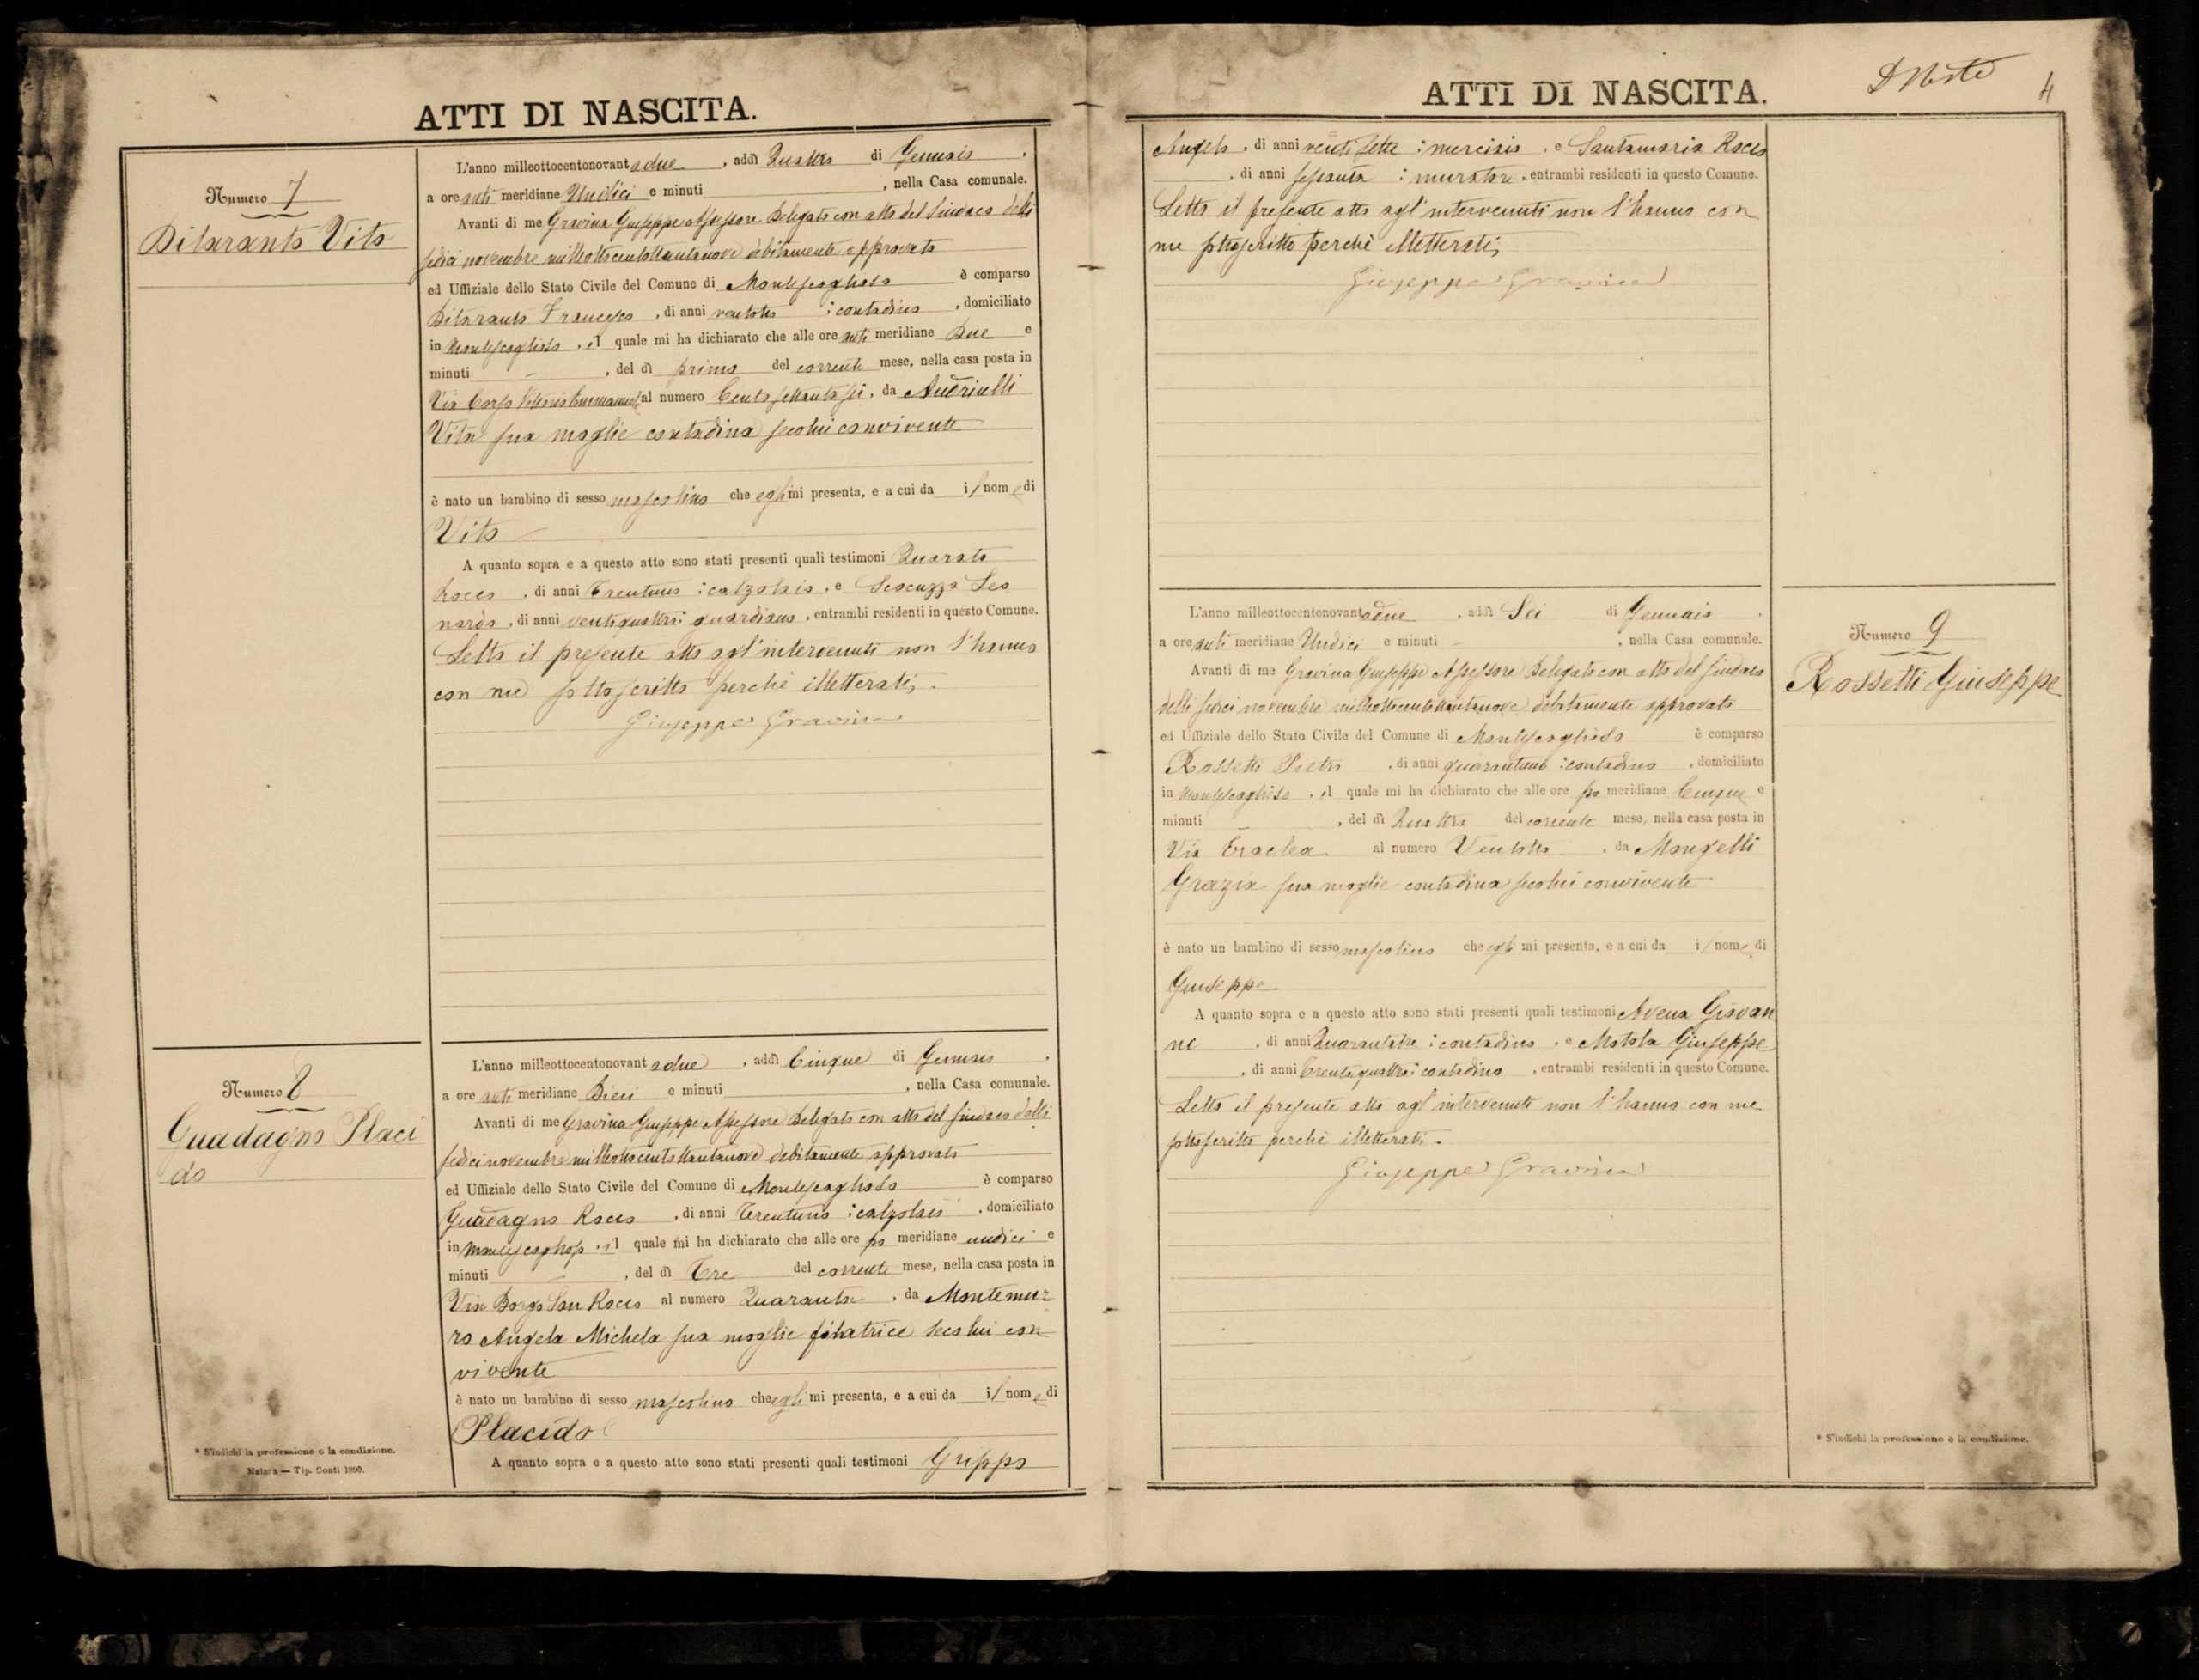 ATTI DI NASCITA.
Numero 7
Ditaranto Vito
L'anno milleottocentonovantadue, addì Quattro di Gennaio,
a ore anti meridiane Undici e minuti, nella Casa comunale.
Avanti di me Gravina Giuseppe Assessore Delegato con atto del Sindaco delli
sedici novembre milleottocentottantanove debitamente approvato
ed Uffiziale dello Stato Civile del Comune di Montescaglioso è comparso
Ditaranto Francesco, di anni ventotto contadino, domiciliato
in Montescaglioso, il quale mi ha dichiarato che alle ore anti meridiane Due e
minuti -, del dì primo del corrente mese, nella casa posta in
Via Corso Vittorio Emanuele al numero Cento settanta sei, da Andriulli
Vita sua moglie contadina secolui convivente
è nato un bambino di sesso mascolino che egli mi presenta, e a cui da il nome di
Vito
A quanto sopra e a questo atto sono stati presenti quali testimoni Quarato
Rocco, di anni Trentuno calzolaio, e Scocuzza Leo
nardo, di anni ventiquattro guardiano, entrambi residenti in questo Comune.
Letto il presente atto agl'intervenuti non l'hanno
con me sottoscritto perchè illetterati.
Giuseppe Gravina
Numero 8
Guadagno Placi
do
L'anno milleottocentonovantadue, addì Cinque di Gennaio,
a ore anti meridiane Dieci e minuti, nella Casa comunale.
Avanti di me Gravina Giuseppe Assessore Delegato con atto del Sindaco delli
sedici novembre milleottocentottantanove debitamente approvato
ed Uffiziale dello Stato Civile del Comune di Montescaglioso è comparso
Guadagno Rocco, di anni Trentuno calzolaio, domiciliato
in Montescaglioso, il quale mi ha dichiarato che alle ore po meridiane undici e
minuti -, del dì Tre del corrente mese, nella casa posta in
Via Borgo San Rocco al numero Quaranta, da Montemur
ro Angela Michela sua moglie filatrice secolui con
vivente
è nato un bambino di sesso mascolino che egli mi presenta, e a cui da il nome di
Placido
A quanto sopra e a questo atto sono stati presenti quali testimoni Grippo
* S'indichi la professione o la condizione.
Matera — Tip. Conti 1890.
ATTI DI NASCITA.
4
Angelo, di anni ventisette merciaio, e Santamaria Rocco
, di anni sessanta muratore, entrambi residenti in questo Comune.
Letto il presente atto agl'intervenuti non l'hanno con
me sottoscritto perchè illetterati,
Giuseppe Gravina
L'anno milleottocentonovantadue, addì Sei di Gennaio,
a ore anti meridiane Undici e minuti -, nella Casa comunale.
Avanti di me Gravina Giuseppe Assessore Delegato con atto del Sindaco
delli sedici novembre milleottocentottantanove debitamente approvato
ed Uffiziale dello Stato Civile del Comune di Montescaglioso è comparso
Rossetti Pietro, di anni quarantuno contadino, domiciliato
in Montescaglioso, il quale mi ha dichiarato che alle ore po meridiane Cinque e
minuti -, del dì Quattro del corrente mese, nella casa posta in
Via Eraclea al numero Ventotto, da Mongelli
Grazia sua moglie contadina secolui convivente
è nato un bambino di sesso mascolino che egli mi presenta, e a cui da il nome di
Giuseppe
A quanto sopra e a questo atto sono stati presenti quali testimoni Avena Giovan
ni, di anni Quarantatre contadino, e Motola Giuseppe
, di anni Trentaquattro contadino, entrambi residenti in questo Comune.
Letto il presente atto agl'intervenuti non l'hanno con me
sottoscritto perchè illetterati.
Giuseppe Gravina
Numero 9
Rossetti Giuseppe
* S'indichi la professione o la condizione.